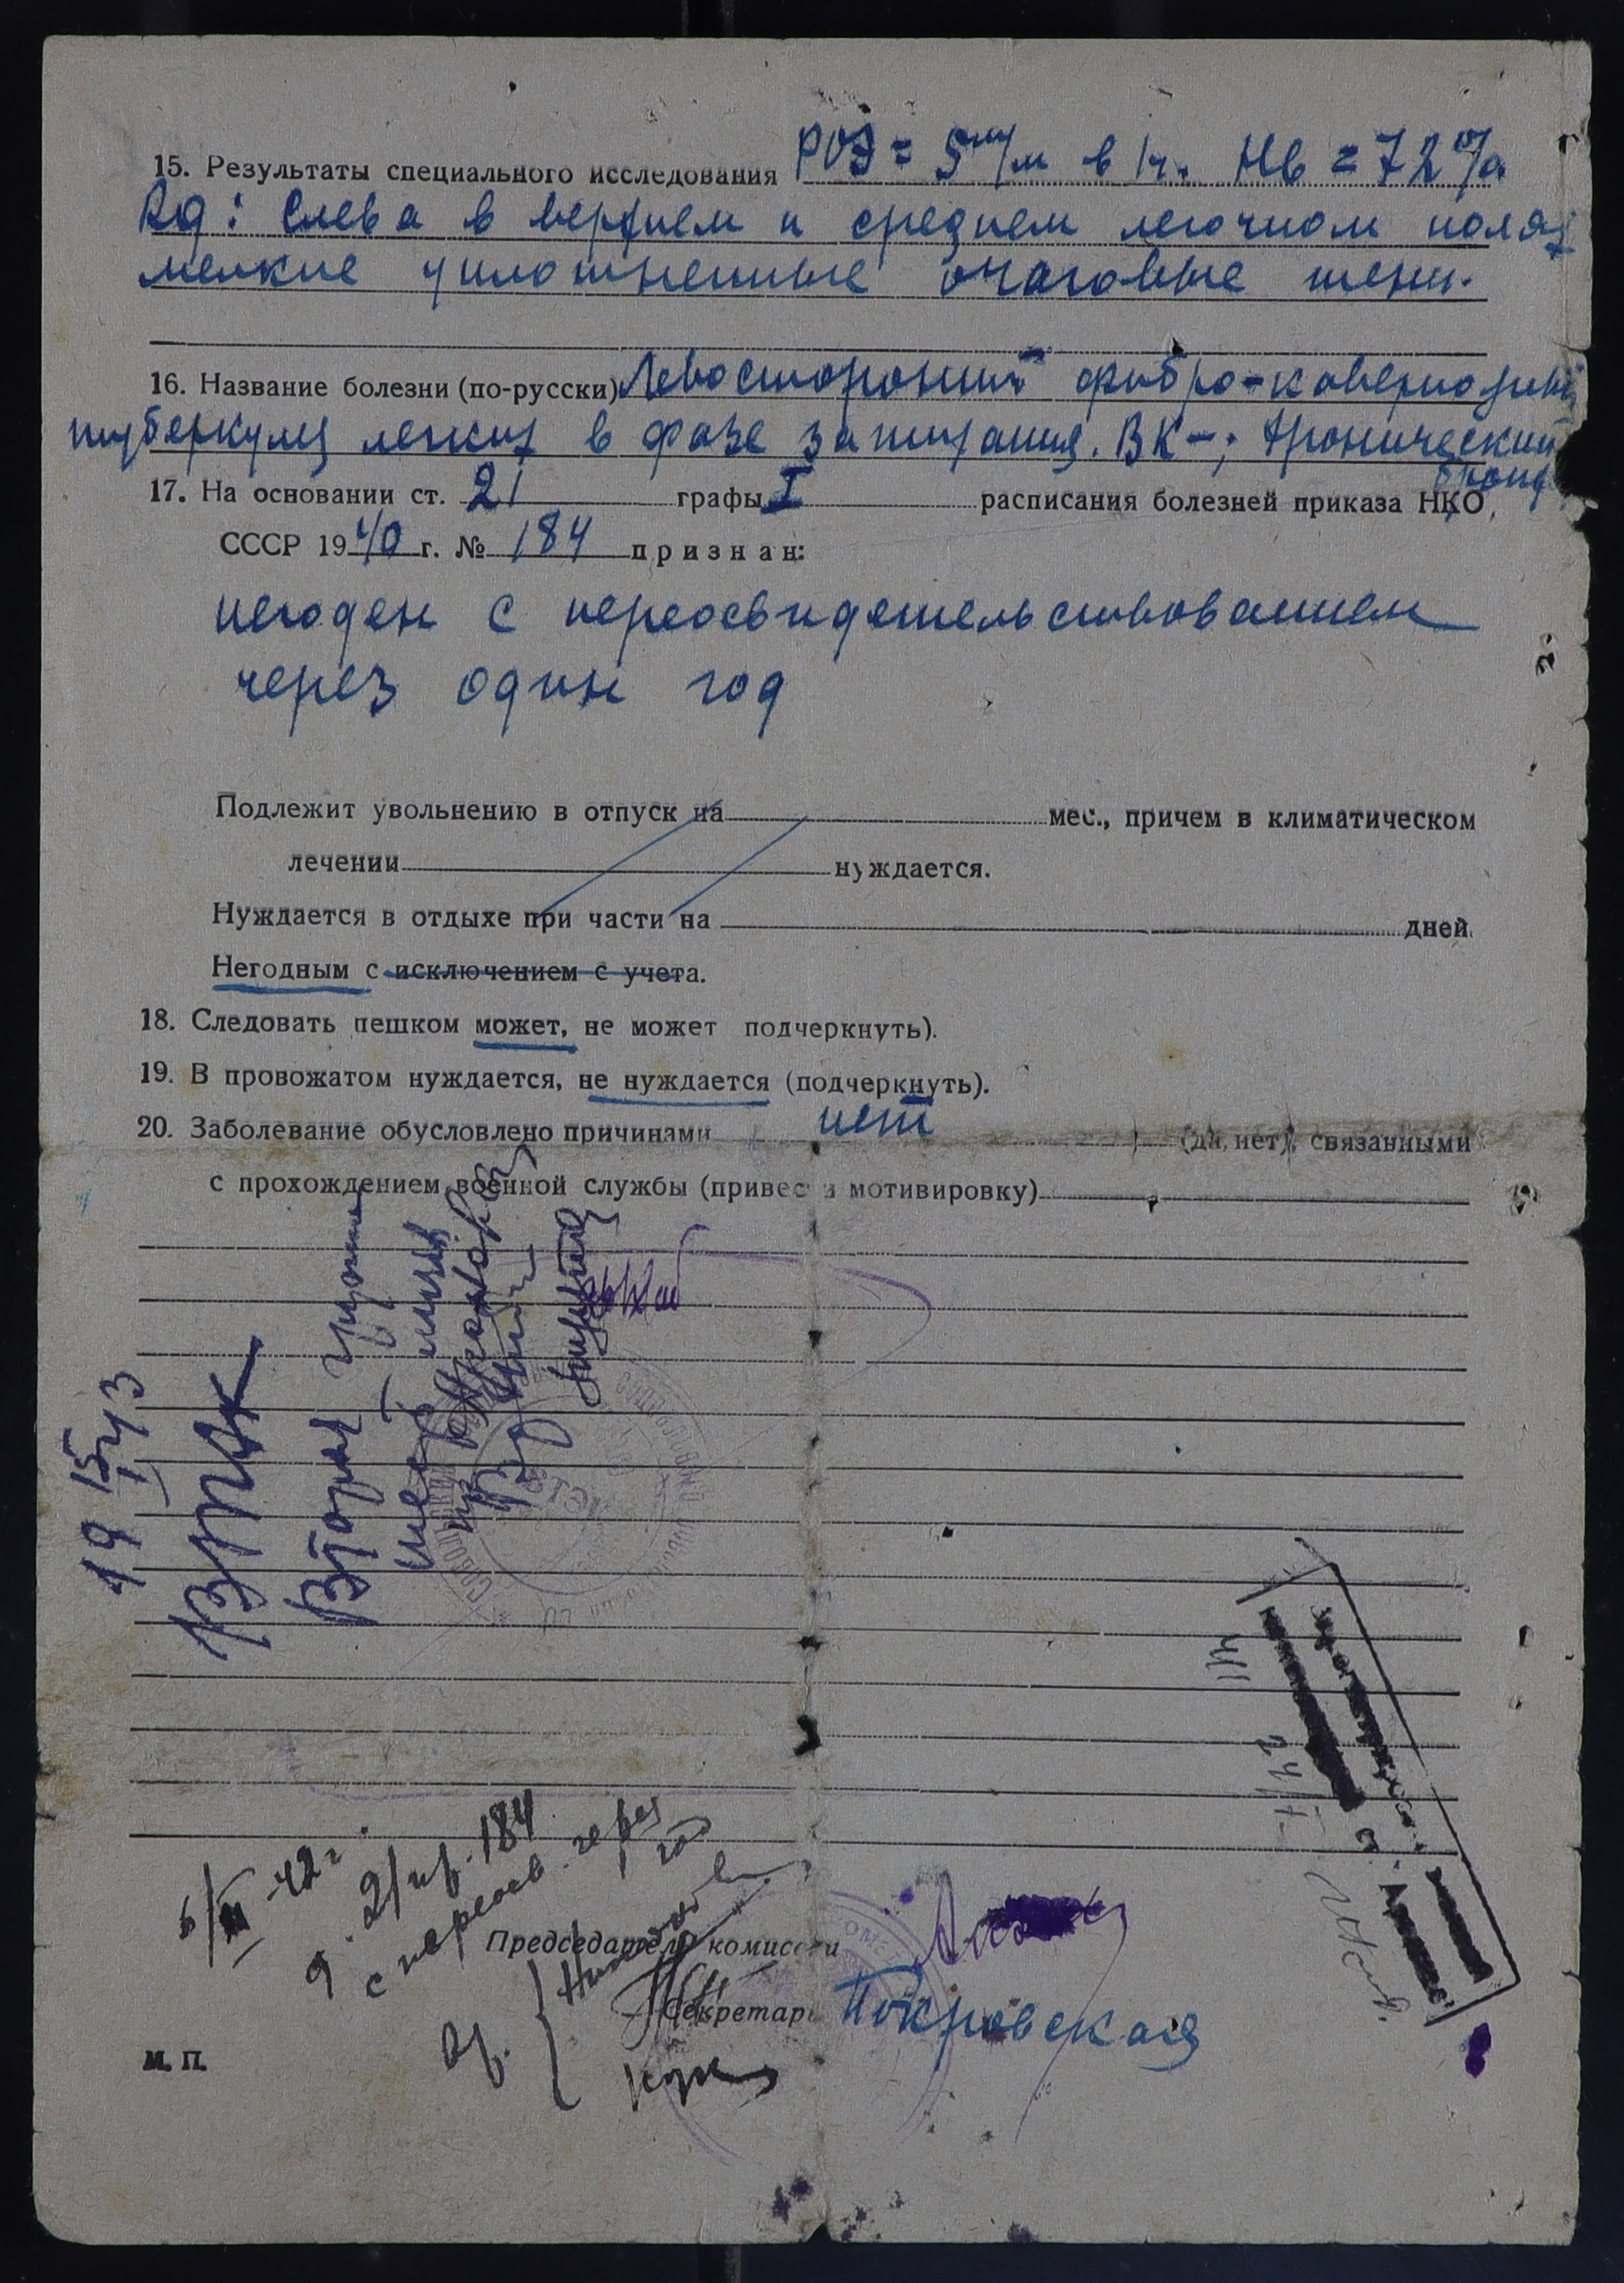 15. Результаты специального исследования РОЭ = 5 м/м в 1ч. Нb = 72%
Rg: Слева в верхнем и среднем легочном полях
мелкие уплотненные очаговые тени.
16. Название болезни (по-русски) Левосторонний фибро-кавернозный
туберкулез легких в фазе затихания. ВК-; Хронический
бронх
17. На основании ст. 21 графы I расписания болезней приказа НКО,
СССР 1940 г. № 184 признан:
негоден с переосвидетельствованием
через один год
Подлежит увольнению в отпуск на мес., причем в климатическом
лечении нуждается.
Нуждается в отдыхе при части на дней
Негодным с исключением с учета.
18. Следовать пешком может, не может подчеркнуть).
19. В провожатом нуждается, не нуждается (подчеркнуть).
20. Заболевание обусловлено причинами нет (да, нет), связанными
с прохождением военной службы (привести мотивировку)
19 15/I 43
ВТЭК
Вторая группа
5/III-42г.
21 пр. 184
с переосв. через
год
Председатель комиссии
Секретарь Покровская
М. П.